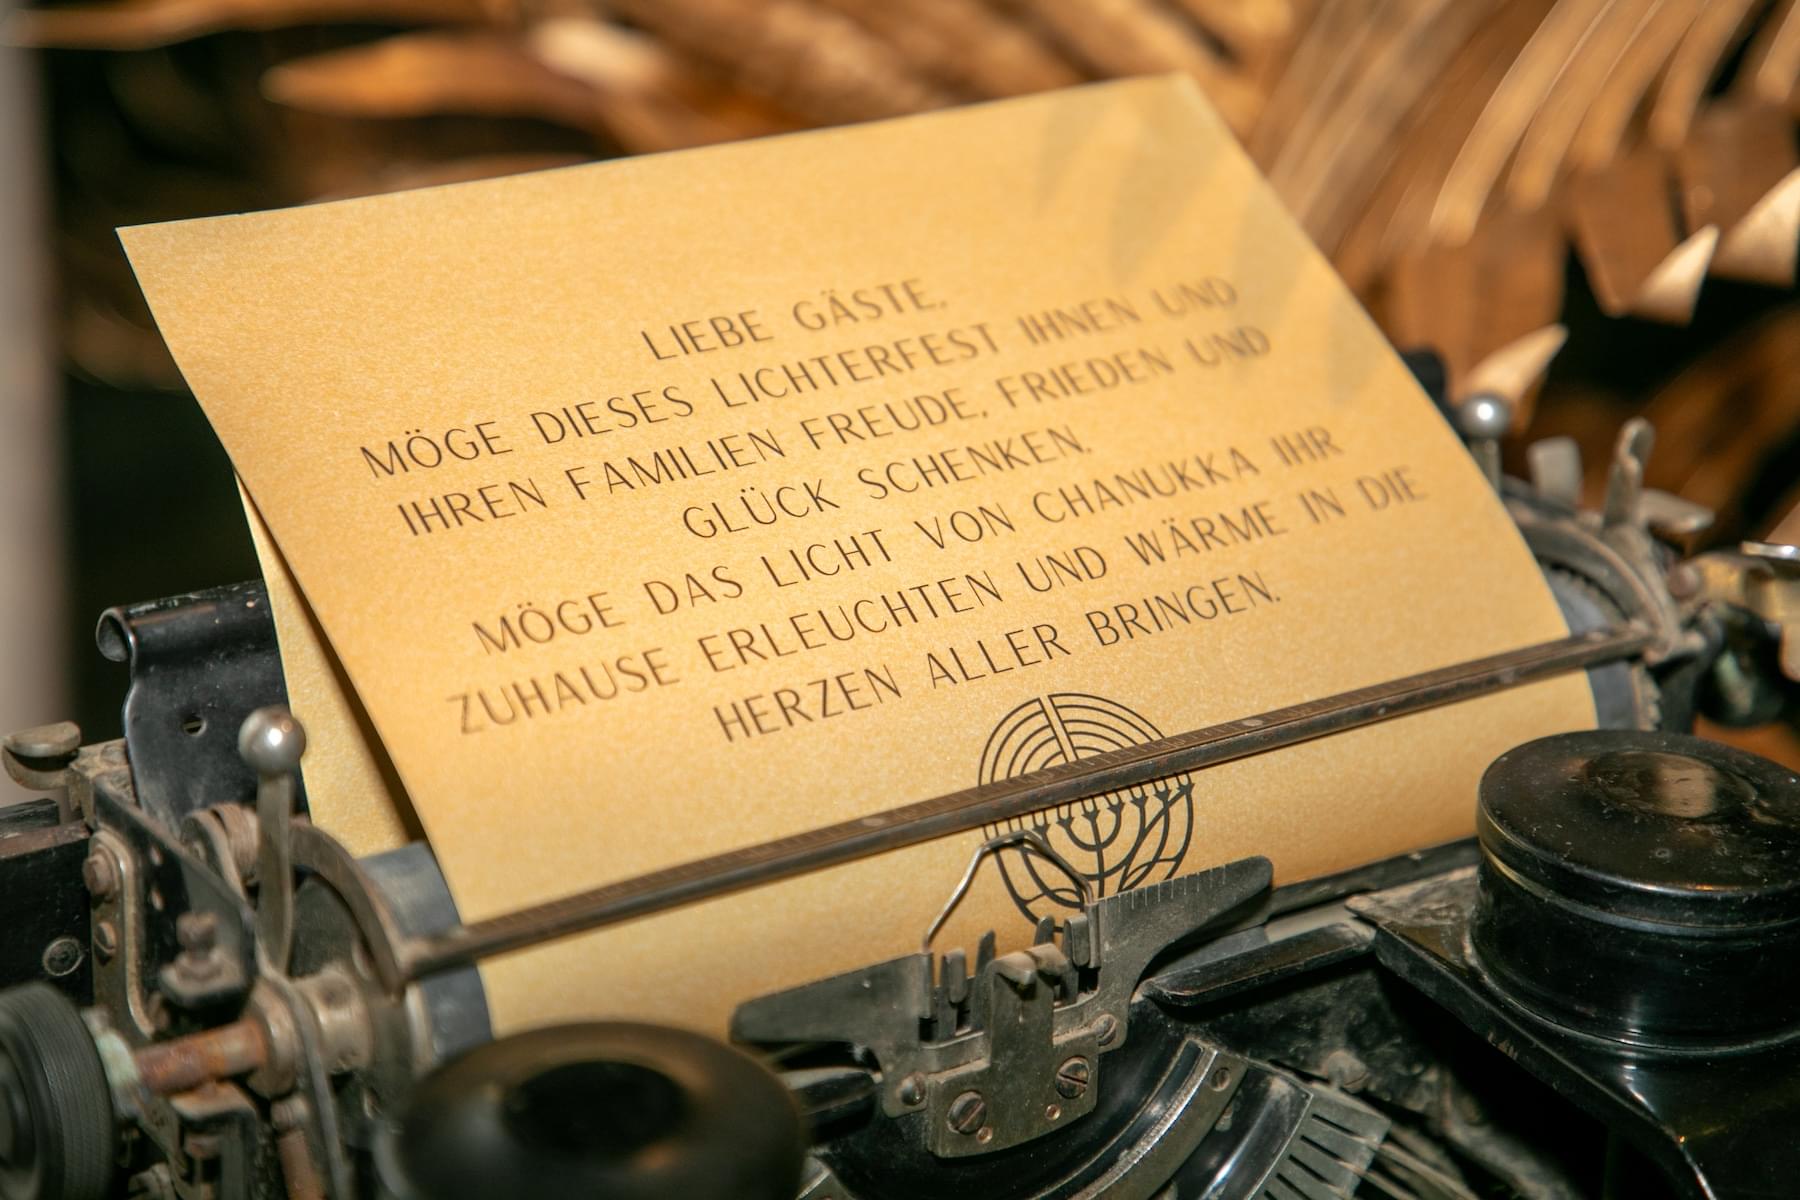 LIEBE GÄSTE,
MÖGE DIESES LICHTERFEST IHNEN UND
IHREN FAMILIEN FREUDE, FRIEDEN UND
GLÜCK SCHENKEN.
MÖGE DAS LICHT VON CHANUKKA IHR
ZUHAUSE ERLEUCHTEN UND WÄRME IN DIE
HERZEN ALLER BRINGEN.